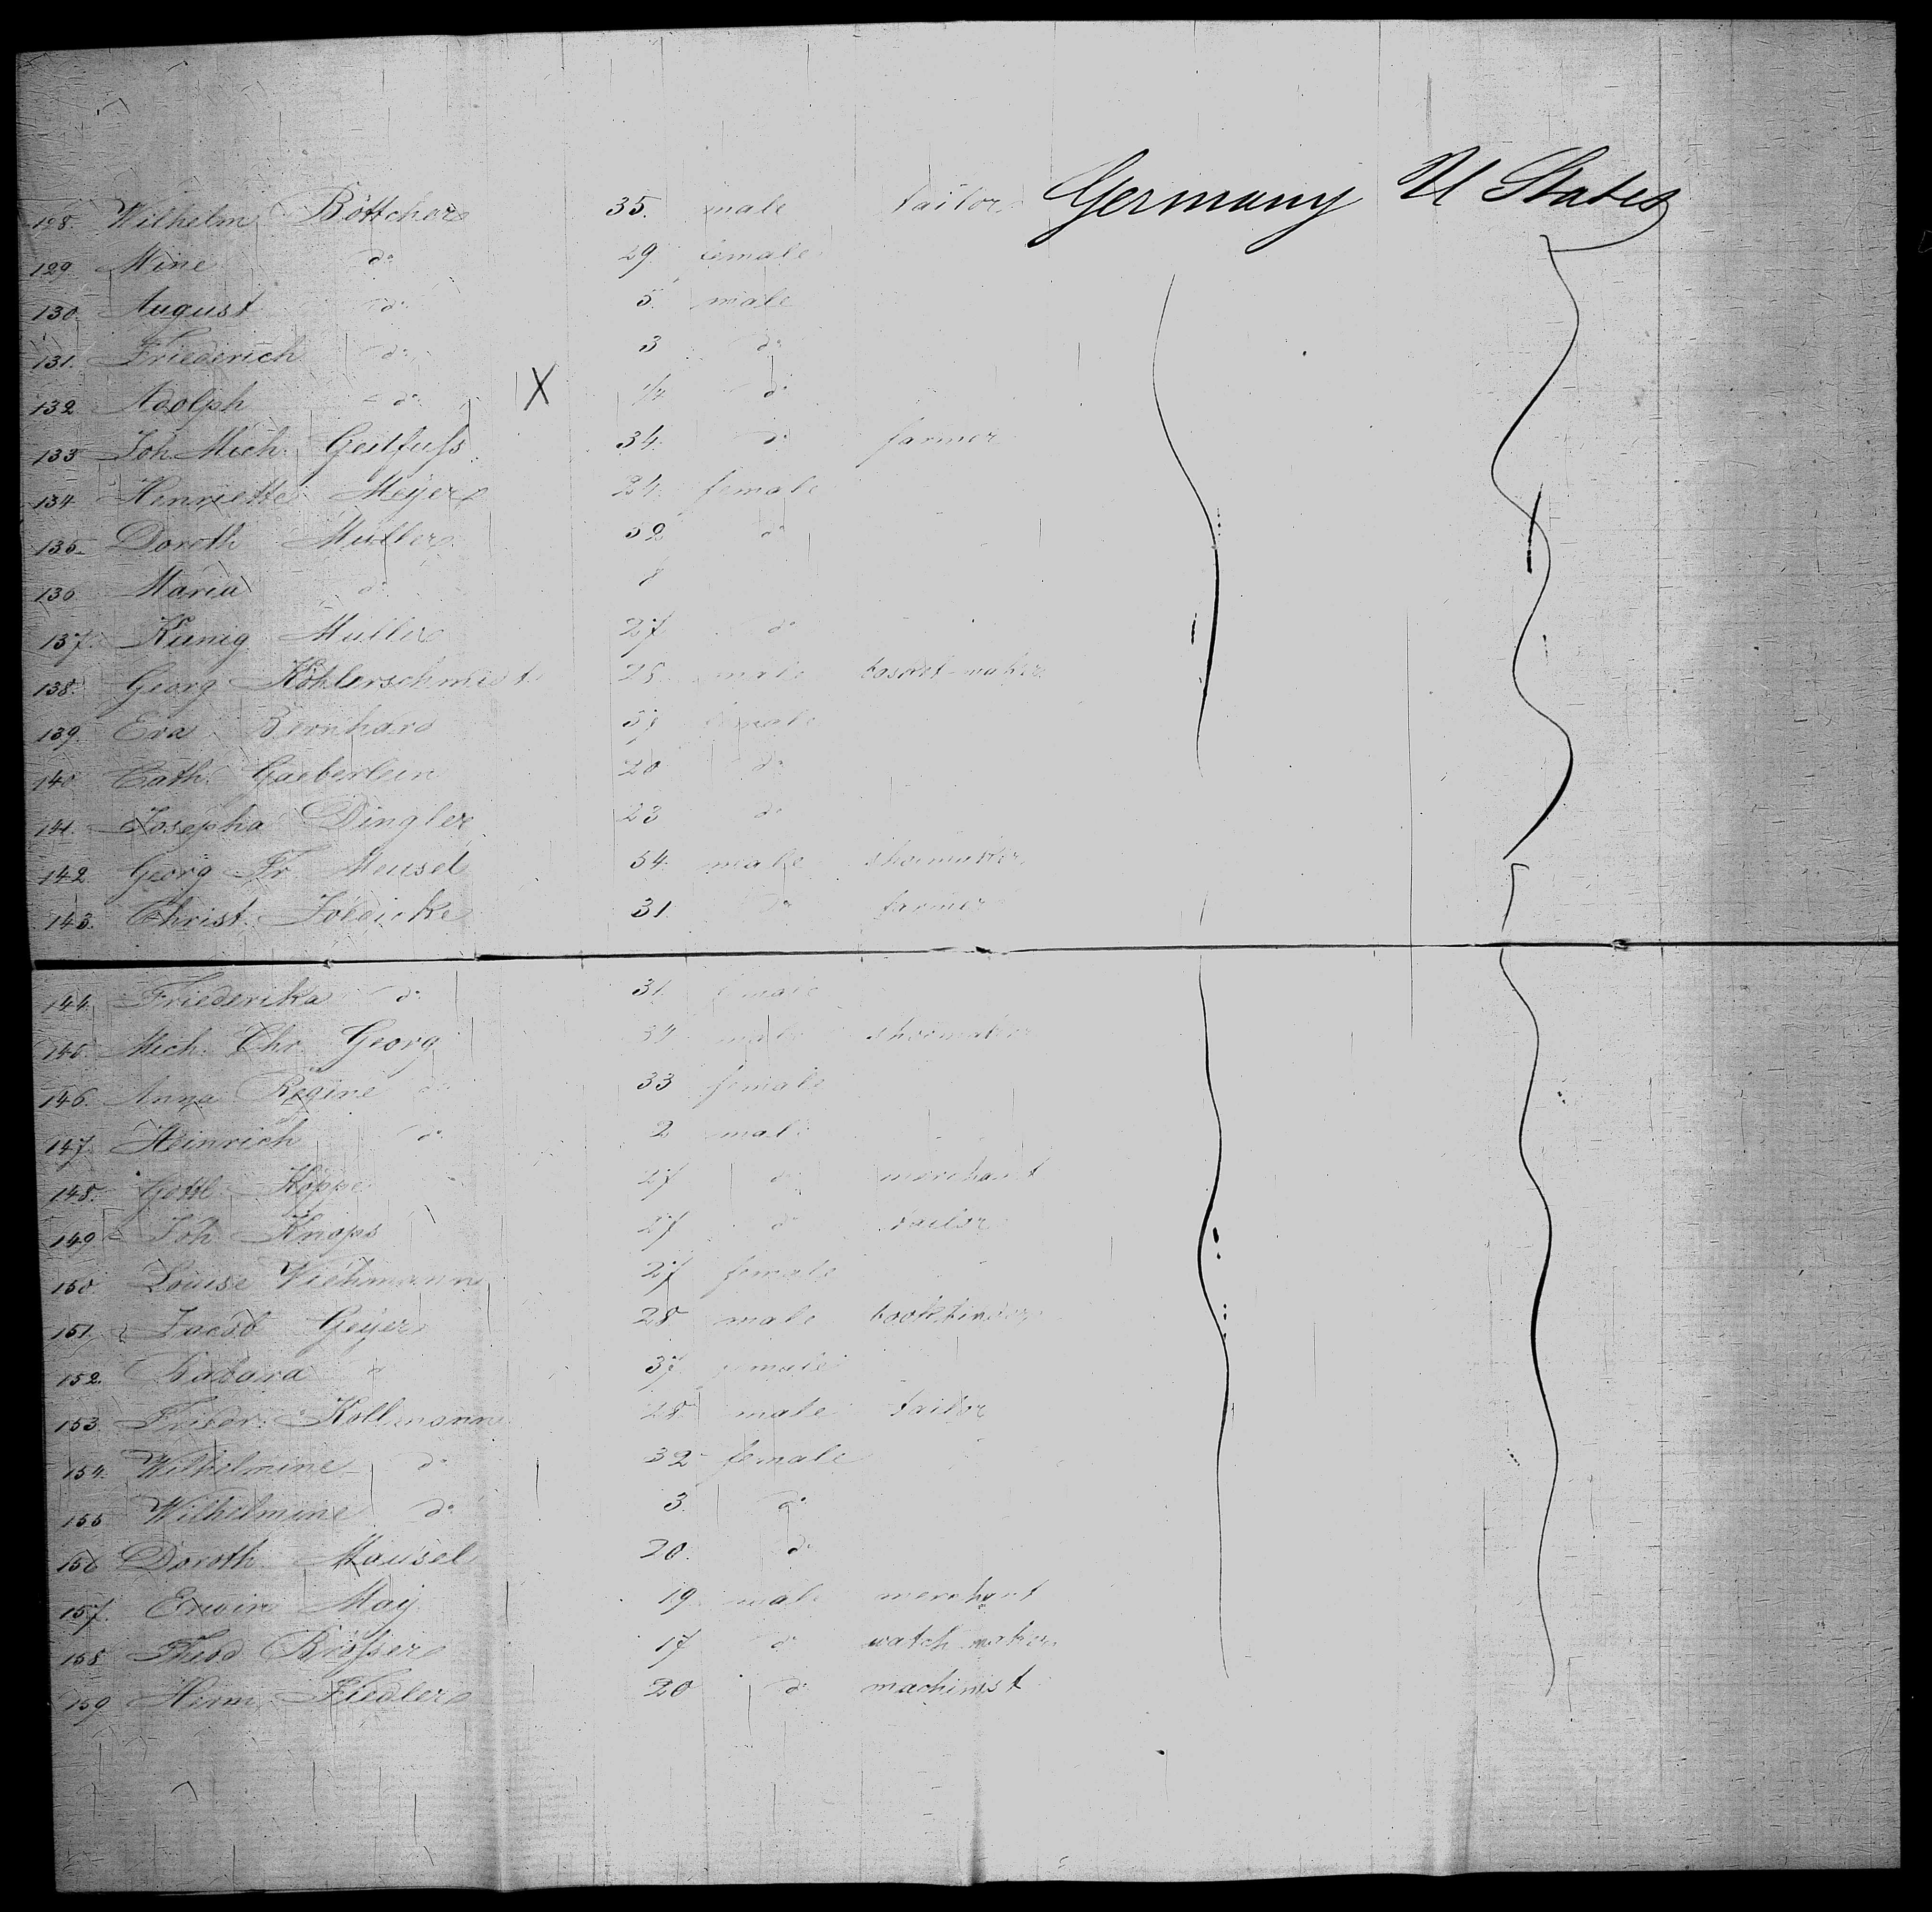 128. Wilhelm Böttcher 35. male tailor Germany U States
129. Mine do 29. female
130. August do 5. male
131. Friederich do 3 do
132. Adolph do X do
133. Joh. Mich. Geilfuss 34. do farmer
134. Henriette Meyer 24. female
135. Doroth. Müller 32 do
136. Maria do 8
137. Kunig. Müller 27 do
138. Georg Köhlerschmidt 25 male basket-maker
139. Eva Bernhard female
140. Cath. Gaeberlein 20 do
141. Josepha Dingler 23 do
142. Georg Fr. Meusel 34. male shoemaker
143. Christ. Joedicke 31 do farmer
144. Friederika do 31. female
145. Mich. Chr. Georg male shoemaker
146. Anna Regine do 33 female
147. Heinrich do 2 male
148. Gottl. Koppe 27 do merchant
149. Joh. Knops 27 do tailor
150. Louise Viehmann 27 female
151. Jacob Geyer 28 male bookbinder
152. Babara do 37. female
153. Frieder. Kollmann 28 male tailor
154. Wilhelmine do 32 female
155 Wilhelmine do 3. do
156 Doroth. Mausel 20. do
157. Erwin May 19 male merchant
158. Theod. 17 do watch maker
159. Herm. Fiedler 20 do machinist